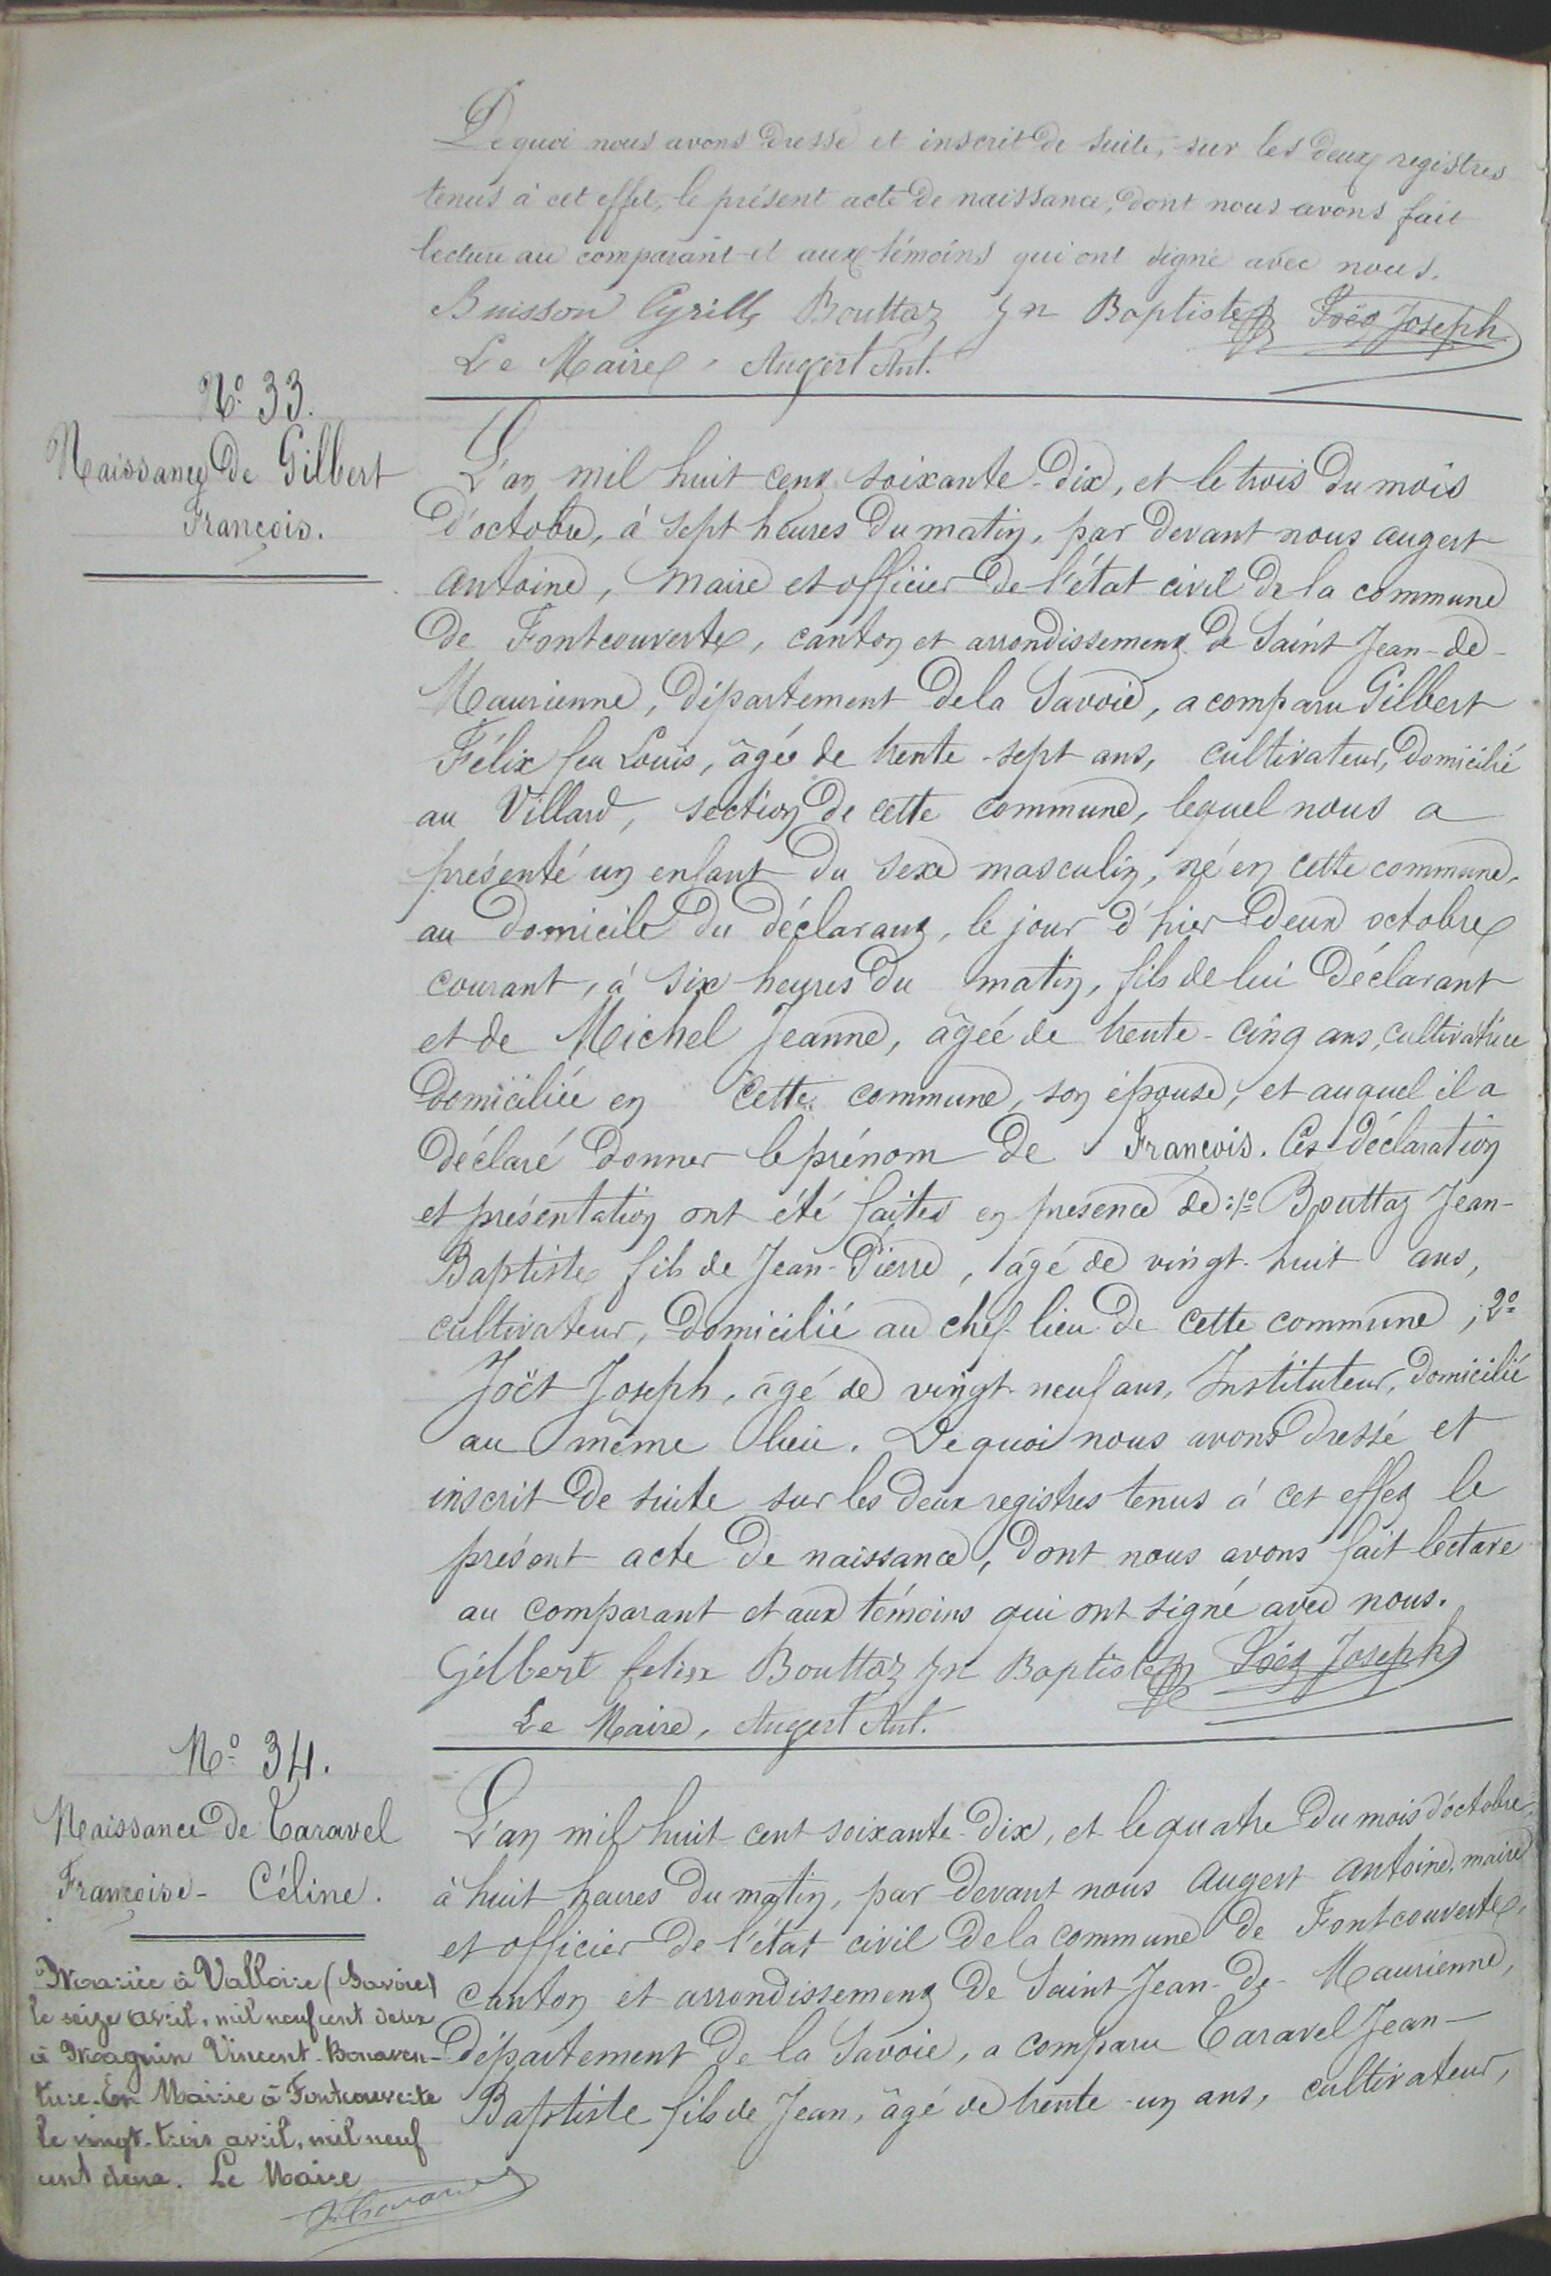 De quoi nous avons dressé et inscrit de suite, sur les deux registres
tenus à cet effet, le présent acte de naissance, dont nous avons fait
lecture au comparant et aux témoins qui ont signé avec nous.
Buisson Cyrille Bouttaz Jn Baptiste Joseph
Le Maire, Augert Ant.
N° 33.
Naissance de Gilbert
François.
L'an mil huit cent soixante-dix, et le trois du mois
d'octobre, à sept heures du matin, par devant nous augert
antoine, maire et officier de l'état civil de la commune
de Fontcouverte, canton et arrondissement de Saint Jean-de-
Maurienne, département de la Savoie, a comparu Gilbert
Félix feu Louis, âgé de trente-sept ans, cultivateur, domicilié
au Villard, section de cette commune, lequel nous a
présenté un enfant du sexe masculin, né en cette commune,
au domicile du déclarant, le jour d'hier deux octobre
courant, à six heures du matin, fils de lui déclarant
et de Michel Jeanne, âgée de trente-cinq ans, cultivatrice
domiciliée en cette commune, son épouse, et auquel il a
déclaré donner le prénom de François. Ces déclaration
et présentation ont été faites en présence de: 1° Bouttaz Jean-
Baptiste fils de Jean-Pierre, âgé de vingt-huit ans,
cultivateur, domicilié au chef-lieu de cette commune, 2°
Joët Joseph, âgé de vingt-neuf ans, Instituteur, domicilié
au même lieu. De quoi nous avons dressé et
inscrit de suite sur les deux registres tenus à cet effet le
présent acte de naissance, dont nous avons fait lecture
au comparant et aux témoins qui ont signé avec nous.
Gilbert felix Bouttaz Jn Baptiste Joseph
Le Maire, Augert Ant.
N° 34.
Naissance de Taravel
Françoise-Céline.
Mariée à Valloire (Savoie)
le seize avril, mil neuf cent deux
à Magnin Vincent-Bonaven-
ture. En Mairie à Fontcouverte
le vingt-trois avril, mil neuf
cent deux. Le Maire
L'an mil huit cent soixante-dix, et le quatre du mois d'octobre,
à huit heures du matin, par devant nous Augert antoine, maire
et officier de l'état civil de la commune de Fontcouverte,
canton et arrondissement de Saint-Jean-de-Maurienne,
département de la Savoie, a comparu Taravel Jean-
Baptiste fils de Jean, âgé de trente-un ans, cultivateur,